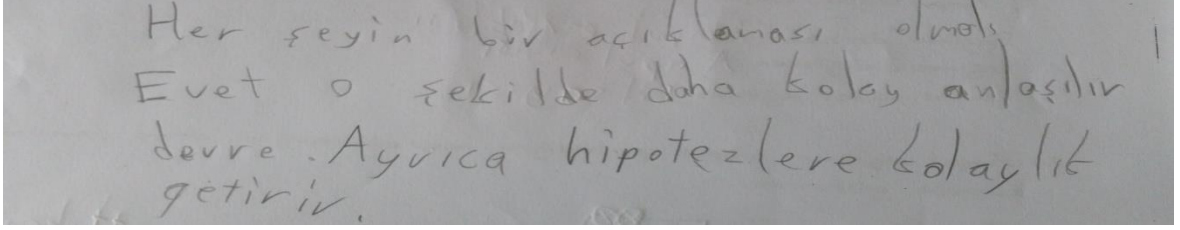 Her şeyin bir açıklaması olmalı
Evet o şekilde daha kolay anlaşılır
devre. Ayrıca hipotezlere kolaylık
getirir.